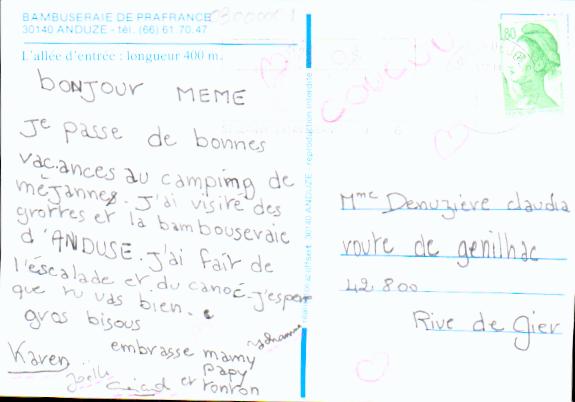 BAMBUSERAIE DE PRAFRANCE
30140 ANDUZE - tél. (66) 61.70.47
L'allée d'entrée : longueur 400 m.
BONJOUR MEME
Je passe de bonnes
vacances au camping de
méjannes. J'ai visité des
grottes et la bambouseraie
d'ANDUSE. J'ai fait de
l'éscalade et du canoé. J'espere
que tu vas bien.
gros bisous
embrasse mamy
papy
et ronron
Karen
Joëlle
reproduction interdite
30140 ANDUZE
COUCOU
1,80
Mme Denuzière claudia
route de genilhac
42 800
Rive de Gier